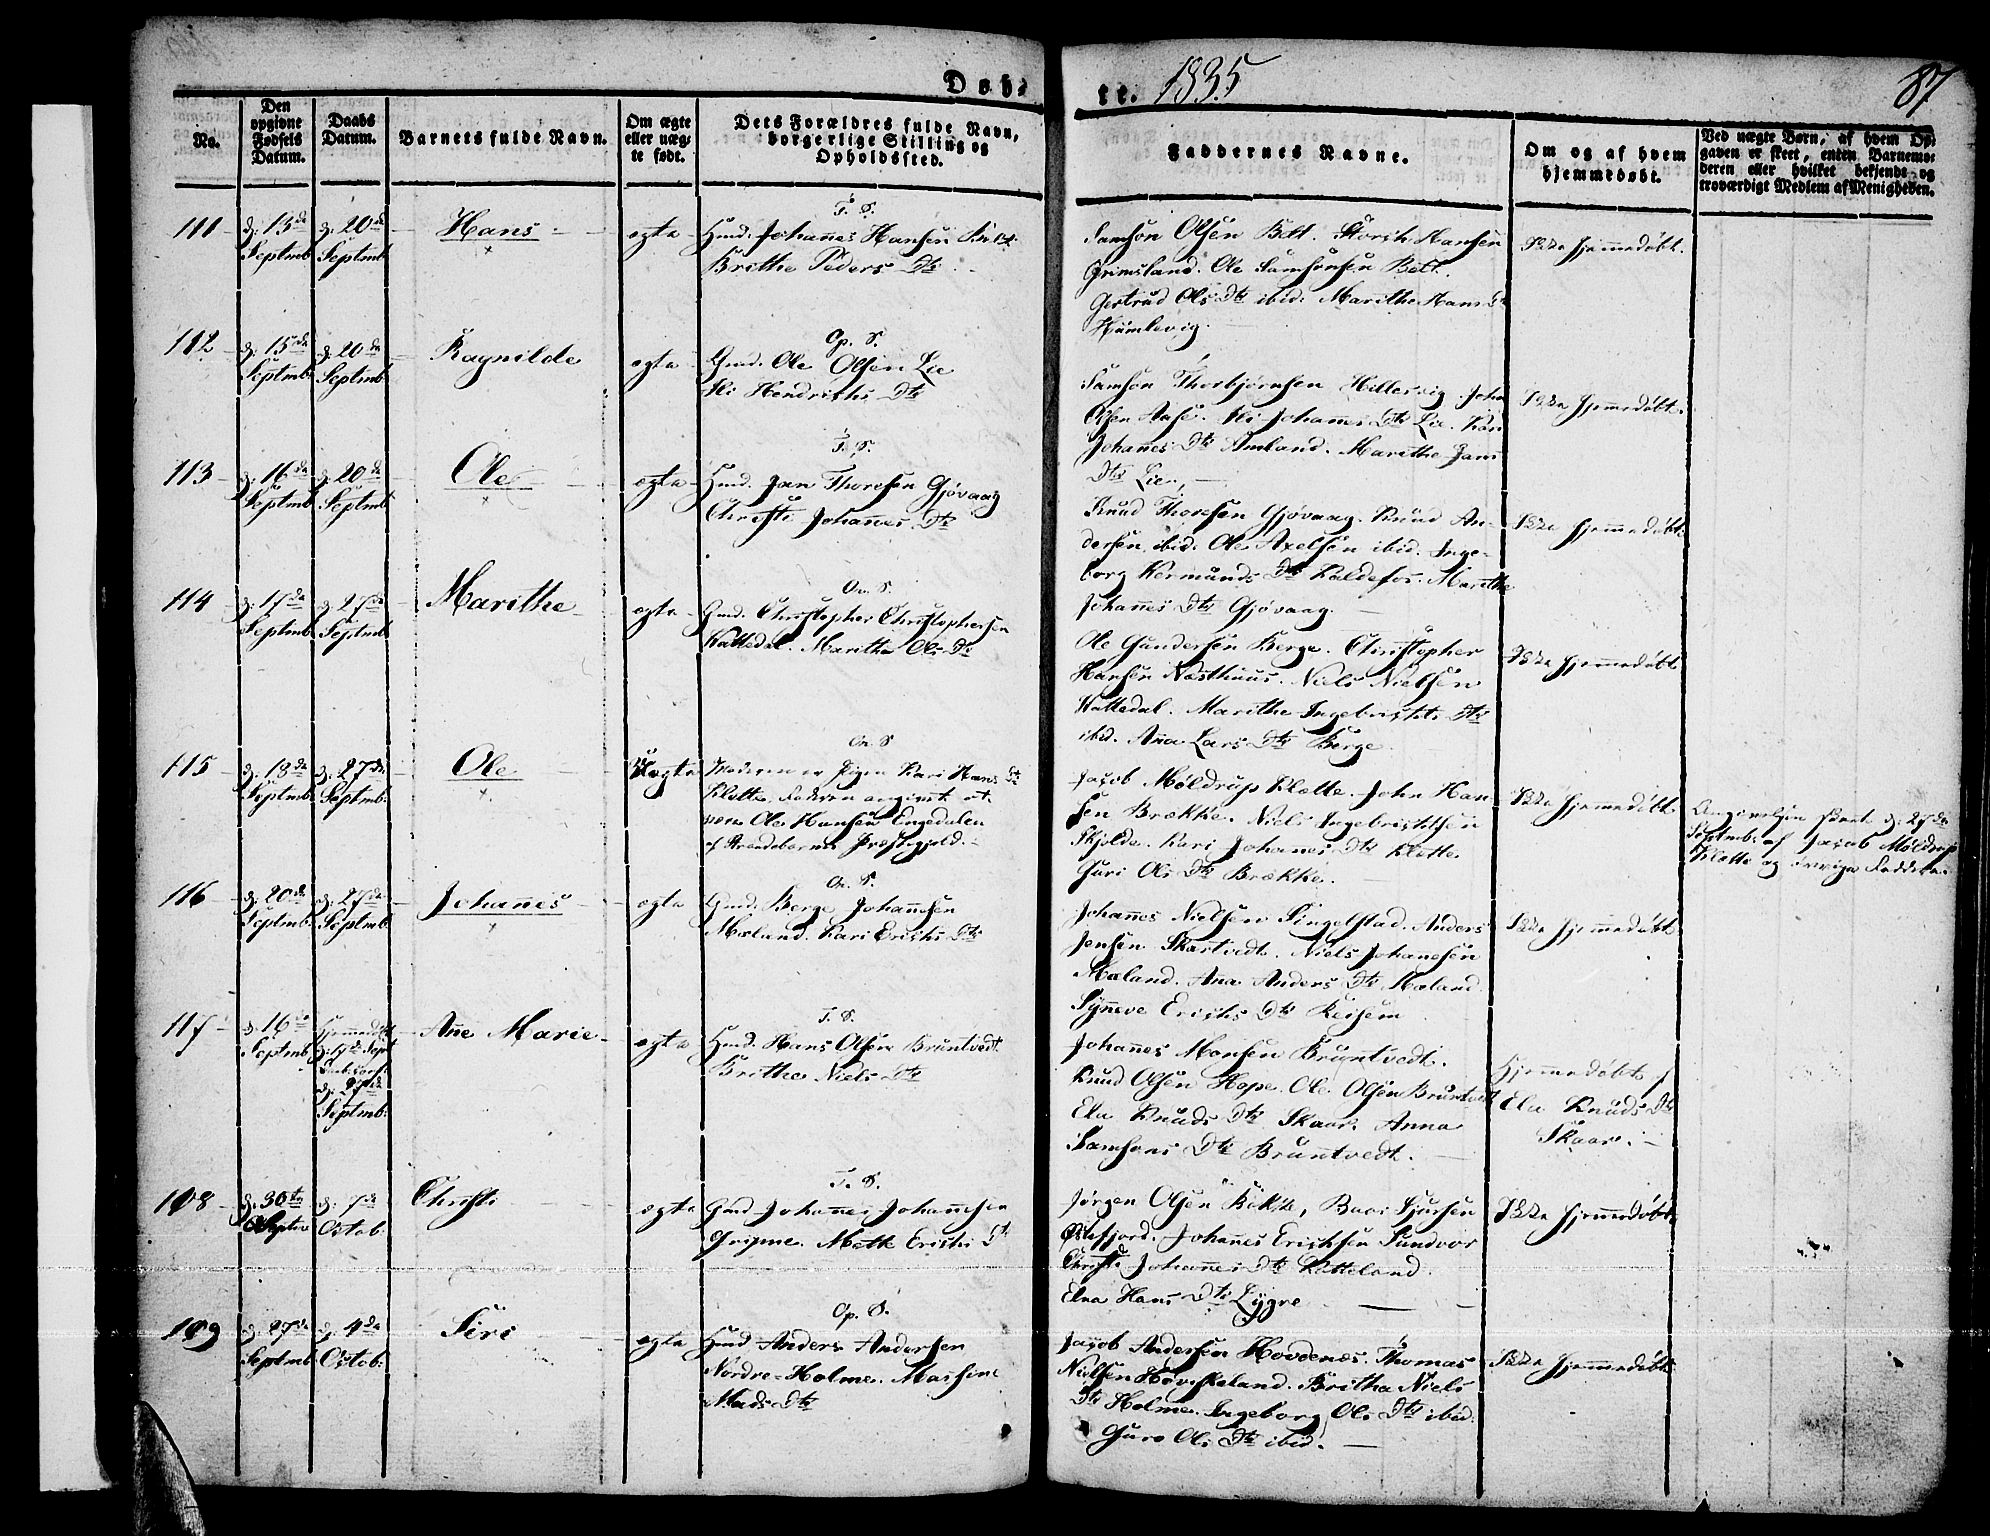 Døbte. 1835
87
No.
Den opgivne Fødsels Datum.
Daabs Datum.
Barnets fulde Navn.
Om ægte eller uæg- te født.
Dets Forældres fulde Navn,
borgerlige Stilling og
Opholdssted.
Faddernes Navne.
Om og af hvem
hjemmedøbt.
Ved uægte Børn, af hvem Op-
gaven er skeet, enten Barnemo-
deren eller hvilket bekjendt og
troværdigt Medlem af Menigheden.
111
d: 13de Septmb
d: 20de Septmb
Hans
ægte
T. S.
Gmd. Johannes Hansen
Brithe Peders Dtr
Samson Olsen Bett. Hansen
Grimsland. Ole Samsonsen Bett.
Gertrud Ols Dtr ibid. Marithe Hans Dtr
Humlevig.
Ikke hjemmedøbt.
112
d: 15de Septmb
d: 20de Septmb
Ragnilde
ægte
Op. S.
Gmd. Ole Olsen Lie
Hendrichs Dtr
Samson Thorbjørnsen Hillesvig. John
Olsen Aase. Johannes Dtr Lie. Kari
Johannes Dtr Amland. Marithe Jans
Dtr Lie.
Ikke hjemmedøbt.
113
d: 16de Septmb
d: 20de Septmb
Ole
ægte
T. S.
Gmd. Jan Thoresen Gjøvaag
Christi Johannes Dtr
Knud Thoresen Gjøvaag. Knud An-
dersen ibid. Ole Axelsen ibid. Inge-
borg Kermunds Dtr Kaldefos. Marithe
Johannes Dtr Gjøvaag.
Ikke hjemmedøbt.
114
d: 17de Septmb
d: 27de Septmb
Marithe
ægte
On. S.
Gmd. Christopher Christophersen
Kattedal. Marithe Ols Dtr
Ole Gundersen Berge. Christopher
Hansen Næsthuus. Niels Nielsen
Kattedal. Marithe Ingebrigts Dtr
ibid. Anna Lars Dtr Berge.
Ikke hjemmedøbt
115
d: 18de Septmb
d: 27de Septmb:
Ole
Uægte
On. S
Moderen er Pigen Kari Hans Dtr
Klette, Faderen angivet at
være Ole Hansen Engedalen
af Strandebarm Præstegjeld.
Jacob Møldrup Klette. John Han-
sen Brække. Niels Ingebrigtsen
Skjelde. Kari Johannes Dtr Klette.
Guri Ols Dtr Brække.
Ikke hjemmedøbt.
Angivelsen skeet d: 27de
Septmb: af Jacob Møldrup
Klette og øvrige Faddere.
116
d: 20de Septmb:
d: 27de Septmb:
Johannes
ægte
On. S.
Gmd. Berge Johannsen
Mæland. Kari Erichs Dtr
Johannes Nielsen Singelstad. Anders
Jensen Skartvedt. Niels Johannesen
Mæland. Ana Anders Dtr Mæland.
Synneve Erichs Dtr Reisem
Ikke hjemmedøbt.
117
d: 16de Septmb
Hjemmedøbt d: 17de Sept d: 27de Septmb:
Ane Marie
ægte
T. S.
Gmd. Hans Olsen Bruntvedt.
Brithe Niels Dtr
Johannes Monsen Bruntvedt.
Knud Olsen Hope. Ole Olsen Bruntvedt
Ela Knuds Dtr Skaar. Anna
Samsons Dtr Bruntvedt.
Hjemmedøbt af
Ela Knuds Dtr
Skaar.
108
d: 30te Septbr
d: 7de Octob:
Christi
ægte
T. S.
Gmd Johannes Johannsen
Gripne. Mette Erichs Dtr
Jørgen Olsen Bække, Baar Sjursen
Østefjord. Johannes Erichsen Sundvor
Christi Johannes Dtr Kætteland.
Elna Hans Dtr Lygre
Ikke hjemmedøbt
109
d: 27de Septmb
d: 4de Octob:
Siri
ægte
Op. S.
Gmd Anders Andersen
Nordre-Holme. Massine
Mads Dtr
Jacob Andersen Hovdenæs. Thomas
Nielsen Høviskeland. Britha Niels
Dtr Holme. Ingeborg Ols Dtr ibid.
Guro Ols Dtr ibid.
Ikke hjemmedøbt